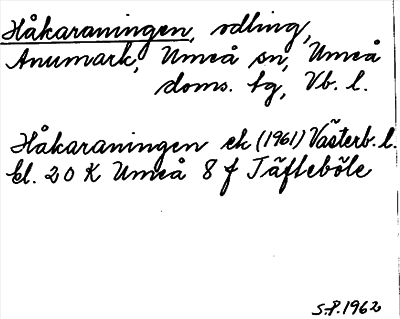 Håkaraningen, odling,
Anumark, Umeå sn, Umeå
doms. tg, Vb. l.
Håkaraningen ek (1961) Västerb. l.
bl. 20 K Umeå 8 f Täfteböle
S.P. 1962